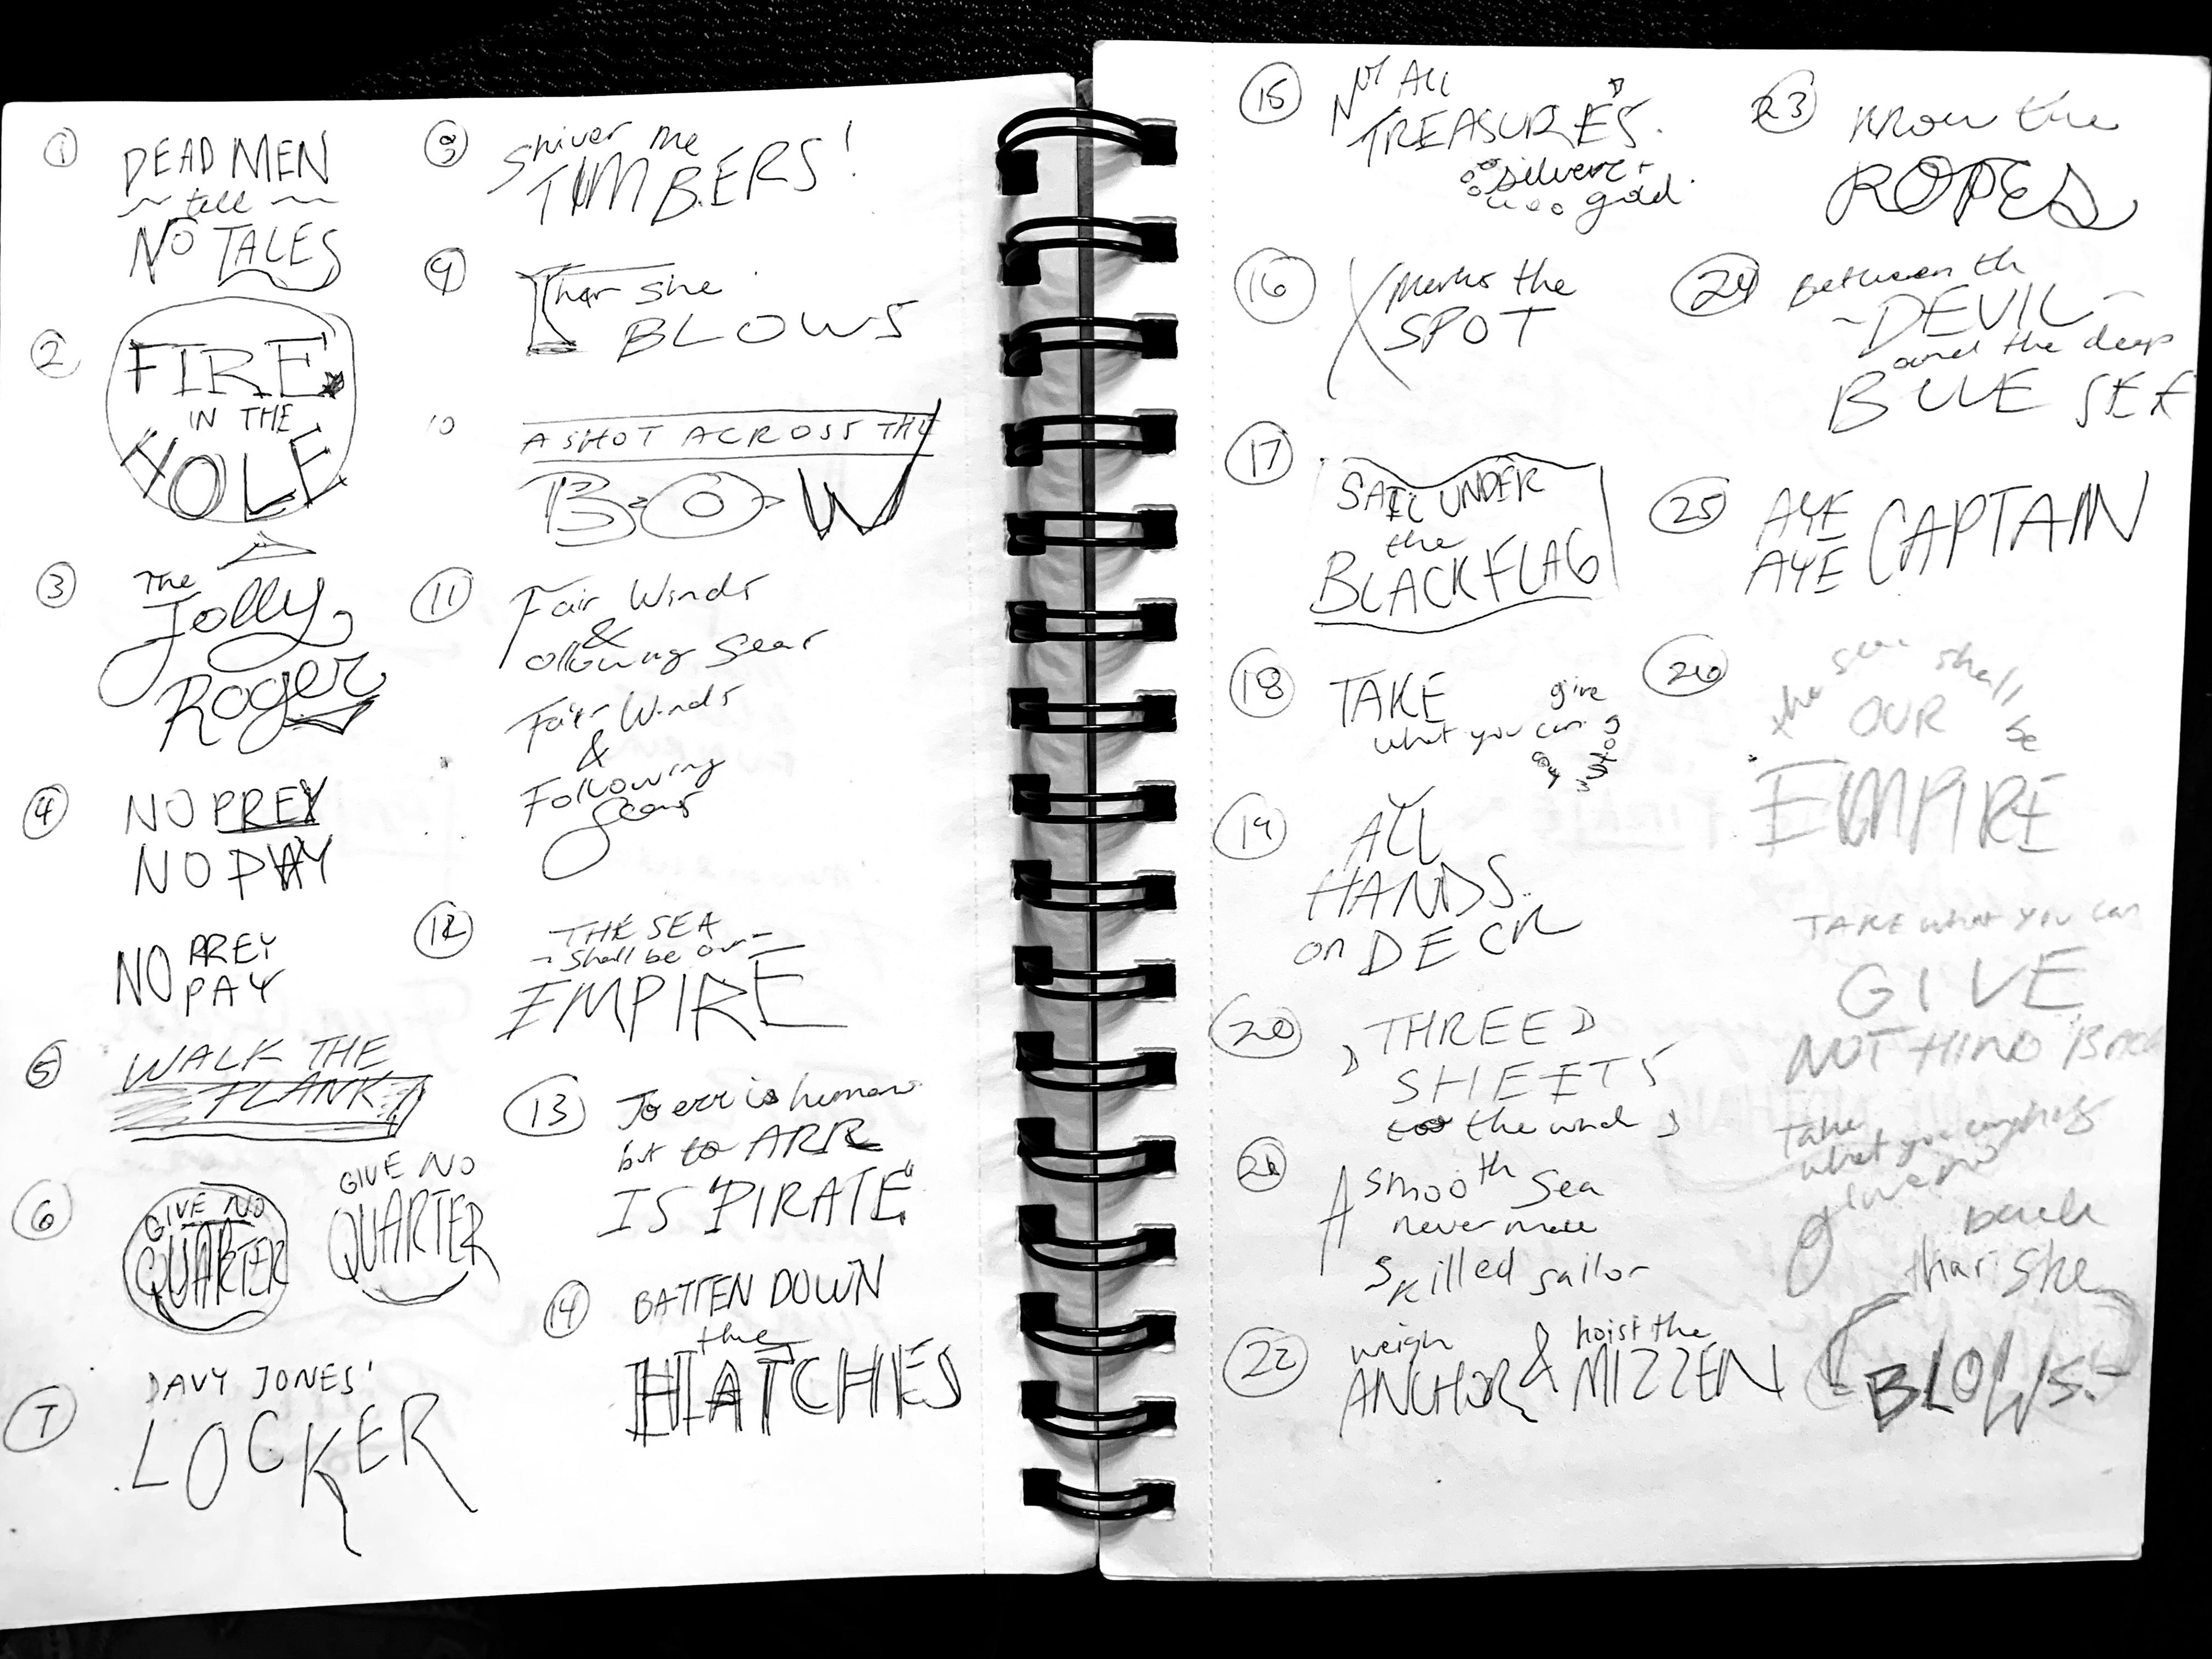 1
DEAD MEN
~ tell ~
NO TALES
2
FIRE
IN THE
HOLE
3
The
Jolly
Roger
4
NO PREY
NO PAY
NO PREY
PAY
5
WALK THE
PLANK
6
GIVE NO
QUARTER
GIVE NO
QUARTER
7
DAVY JONES'
LOCKER
8
Shiver me
TIMBERS!
9
Thar she
BLOWS
10
A SHOT ACROSS THE
BOW
11
Fair Winds
&
ollowing Seas
Fair Winds
&
Following
Seas
12
THE SEA
~ Shall be our ~
EMPIRE
13
To err is human
but to ARR
IS "PIRATE"
14
BATTEN DOWN
the
HATCHES
15
Not All
TREASURE'S
silver +
gold
16
X marks the
SPOT
17
SAIL UNDER
the
BLACK FLAG
18
TAKE
what you can
give
nothing
19
ALL
HANDS
on DECK
20
THREE
SHEETS
to the wind
21
A smooth sea
never made
skilled sailor
22
weigh
ANCHOR & hoist the
MIZZEN
23
Know the
ROPES
24
Between th
~ DEVIL ~
and the deep
BLUE SEA
25
AYE
AYE CAPTAIN
26
the sea shall be
OUR
EMPIRE
TAKE what you can
GIVE
NOTHING Back
Take
what you can
give no
back
thar she
BLOWS